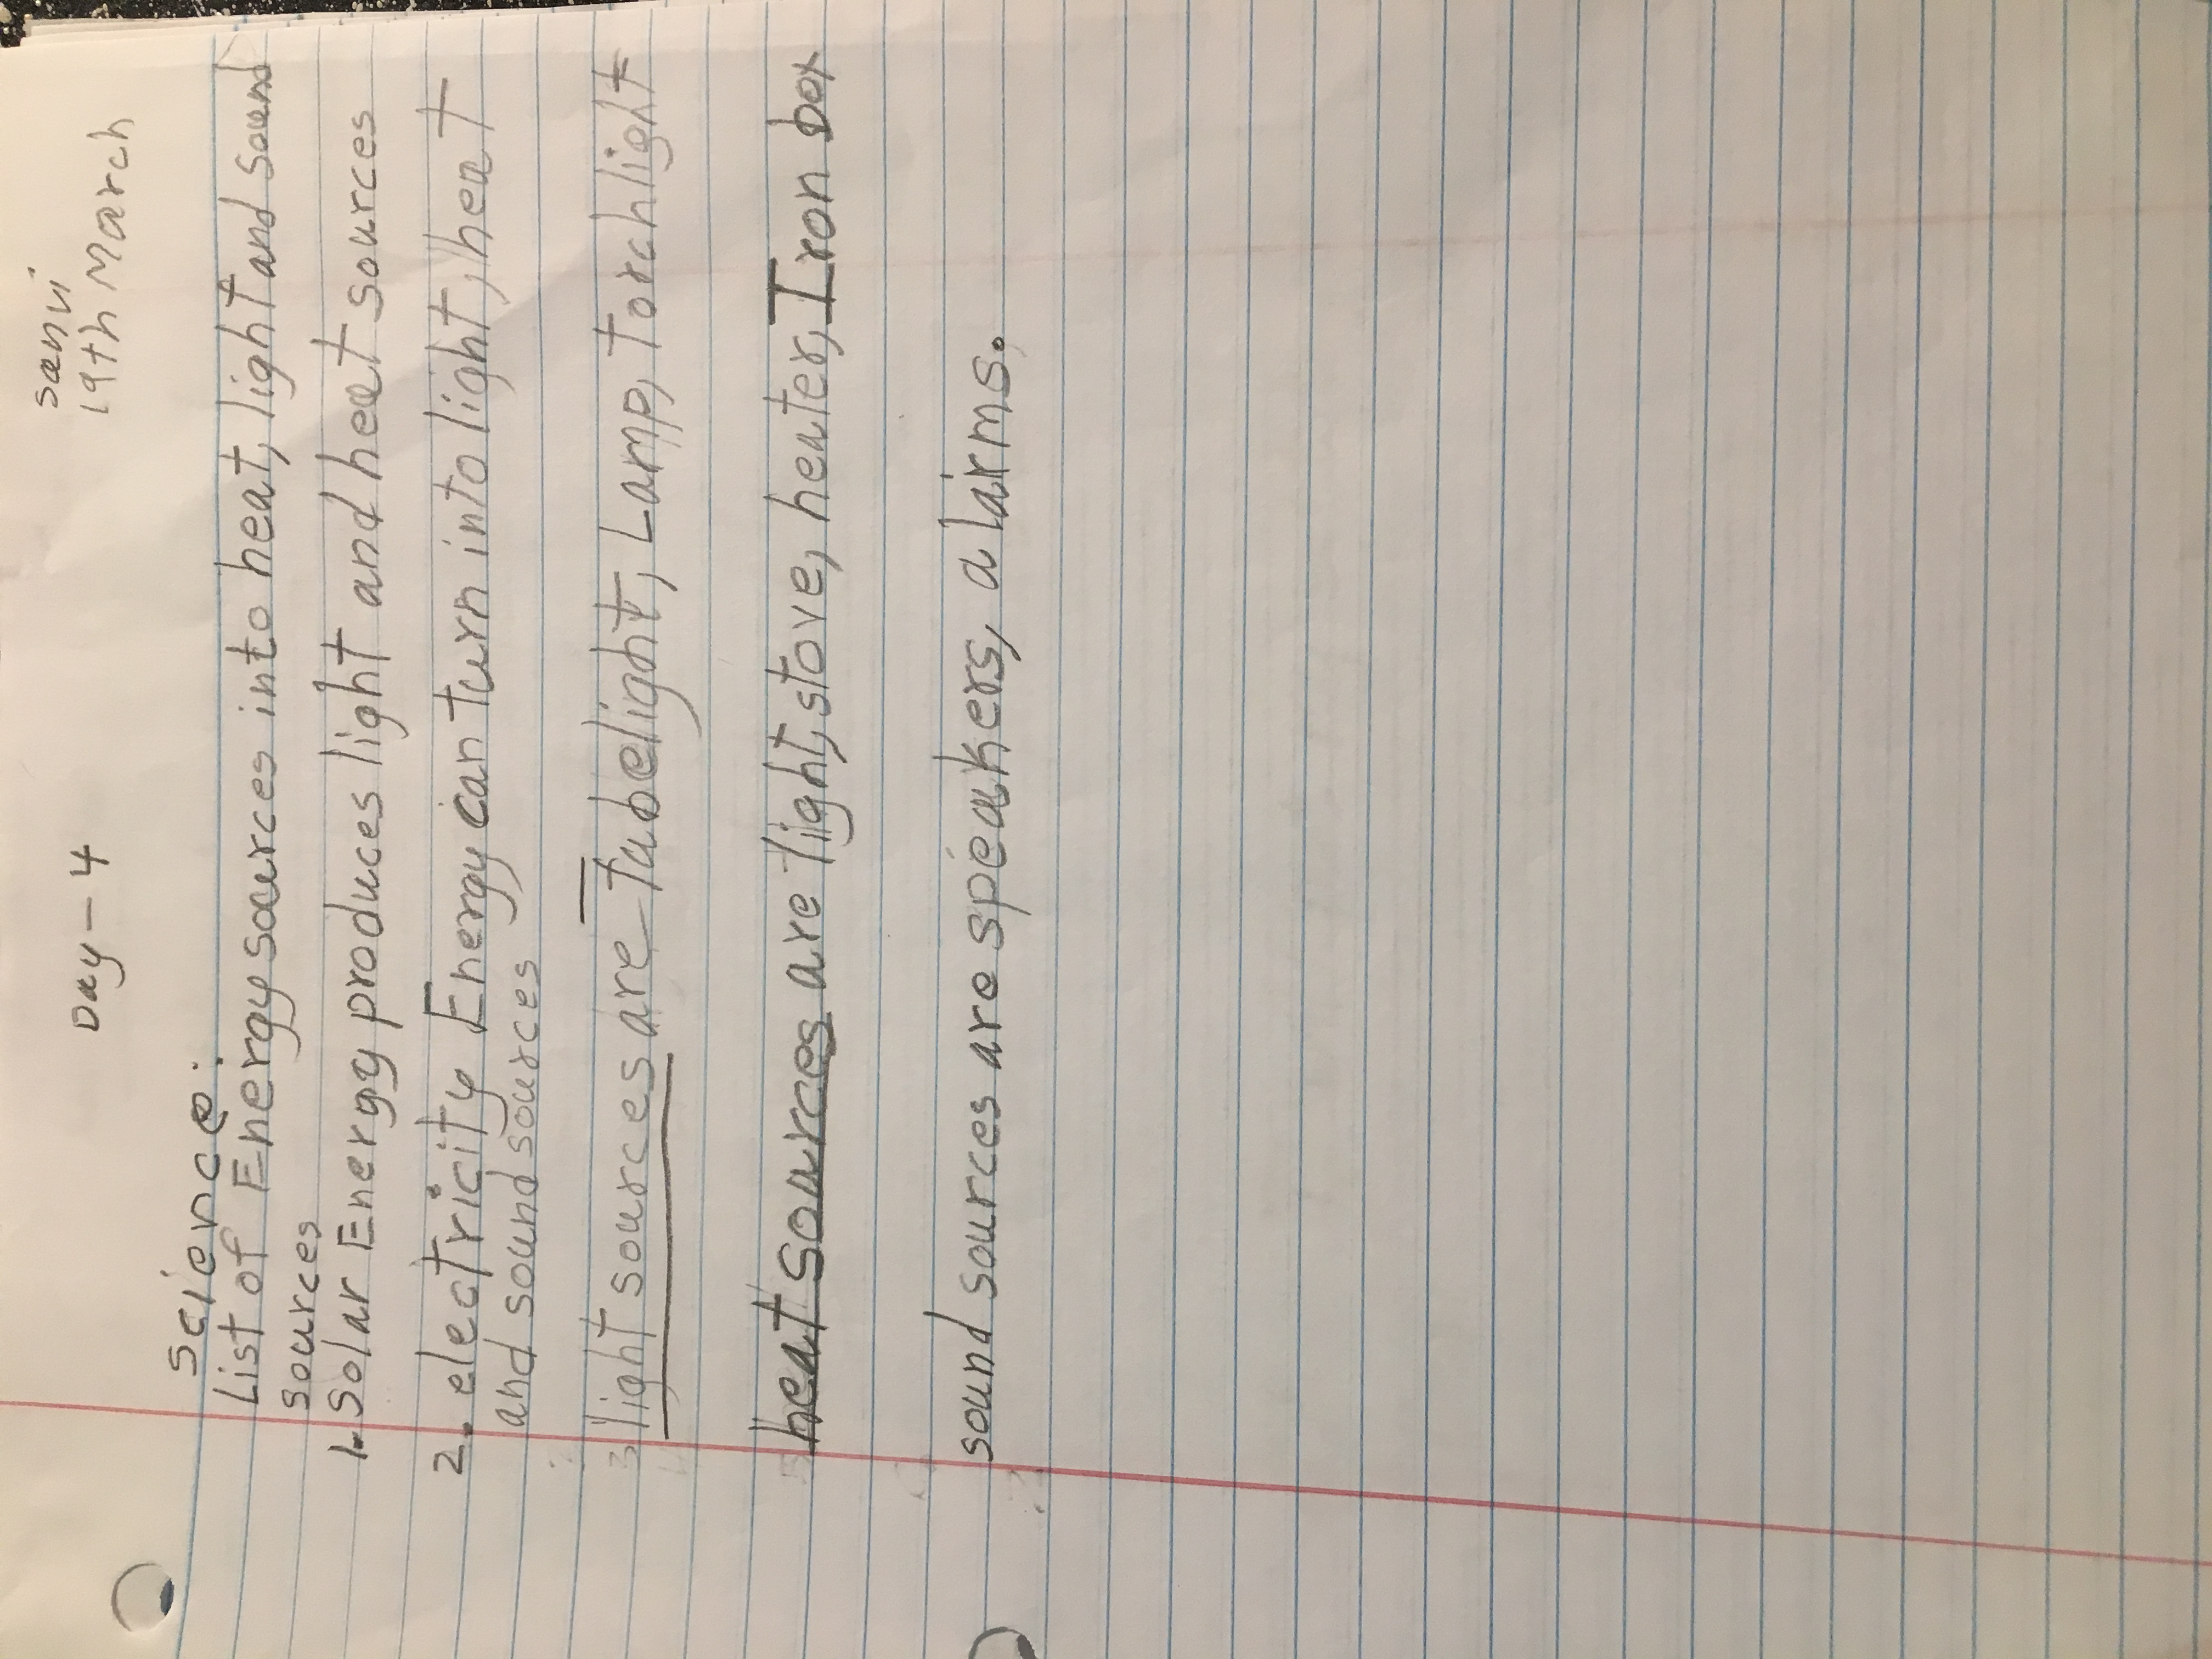 Day - 4
sanvi
19th March
science:
List of Energy sources into heat, light and sound
sources
1. Solar Energy produces light and heat sources
2. electricity Energy can turn into light, heat
and sound sources
3 light sources are Tubelight, Lamp, Torchlight
heat sources are light, stove, heater, Iron box
sound sources are speakers, alarms.